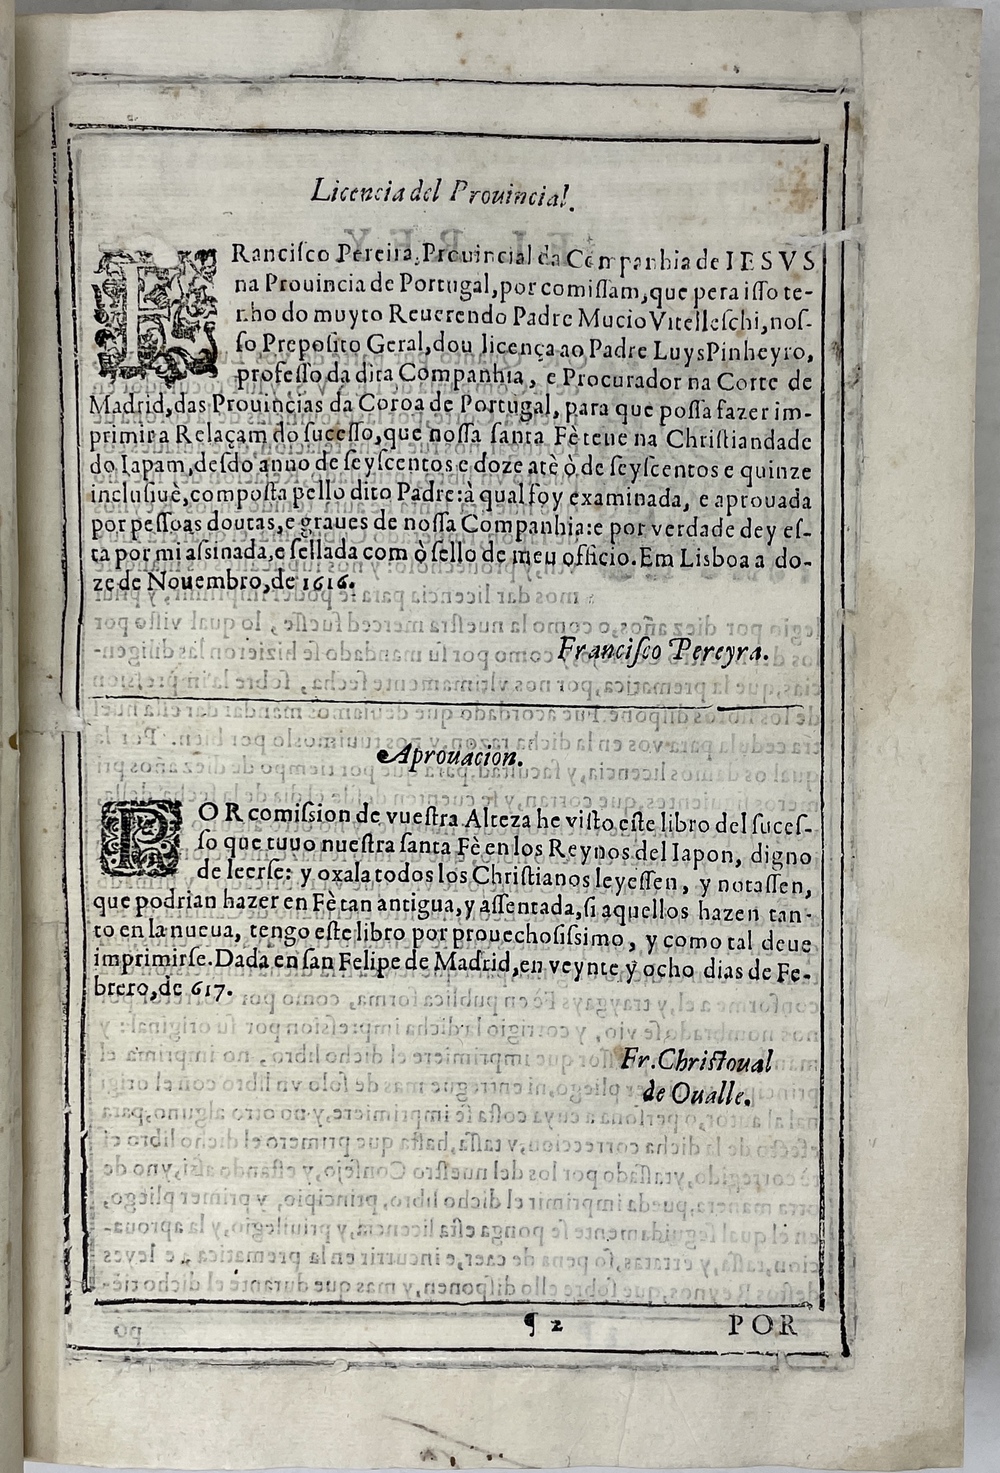 Licencia del Prouincial.
FRancisco Pereira, Prouincial da Companhia de IESVS
na Prouincia de Portugal, por comissam, que pera isso te-
nho do muyto Reuerendo Padre Mucio Vitelleschi, nos-
so Preposito Geral, dou licença ao Padre Luys Pinheyro,
professo da dita Companhia, e Procurador na Corte de
Madrid, das Prouincias da Coroa de Portugal, para que possa fazer im-
primir a Relaçam do sucesso, que nossa santa Fè teue na Christiandade
do Iapam, desdo anno de seyscentos e doze atè ò de seyscentos e quinze
inclusiuè, composta pello dito Padre: à qual foy examinada, e aprouada
por pessoas doutas, e graues de nossa Companhia: e por verdade dey es-
ta por mi assinada, e sellada com ò sello de meu officio. Em Lisboa a do-
ze de Nouembro, de 1616.
Francisco Pereyra.
Aprouacion.
POR comission de vuestra Alteza he visto este libro del suces-
so que tuuo nuestra santa Fè en los Reynos del Iapon, digno
de leerse: y oxala todos los Christianos leyessen, y notassen,
que podrian hazer en Fè tan antigua, y assentada, si aquellos hazen tan-
to en la nueua, tengo este libro por prouechosissimo, y como tal deue
imprimirse. Dada en san Felipe de Madrid, en veynte y ocho dias de Fe-
brero, de 617.
Fr. Christoual
de Oualle.
¶ 2 POR